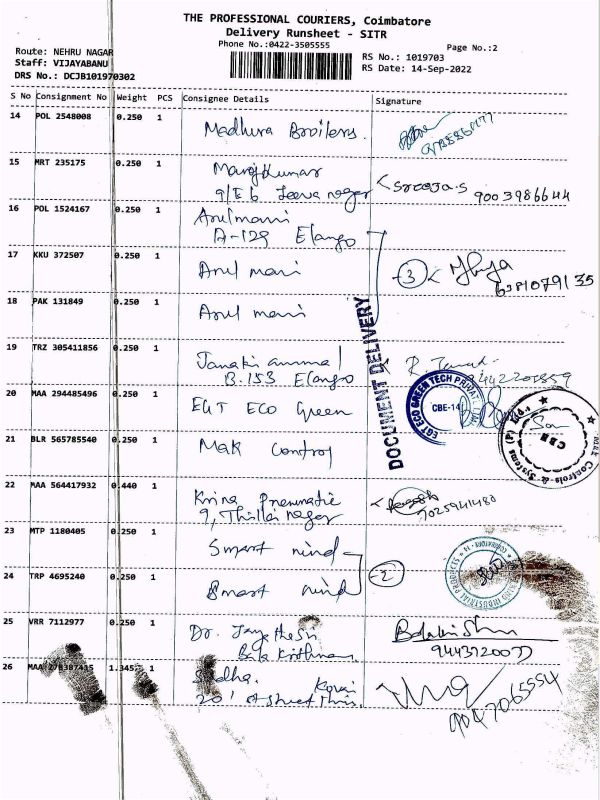 THE PROFESSIONAL COURIERS, Coimbatore
Delivery Runsheet - SITR
Phone No.:0422-3505555
Page No.:2
Route: NEHRU NAGAR
Staff: VIJAYABANU
DRS No.: DCJB101970302
RS No.: 1019703
RS Date: 14-Sep-2022
S No Consignment No Weight PCS Consignee Details Signature
14 POL 2548008 0.250 1 Madhura Broilers.
15 MRT 235175 0.250 1 Manojkumar
9/E6 Jeeva nagar Sreeja.S 9003986644
16 POL 1524167 0.250 1 Arulmani
A-129 Elango
17 KKU 372507 0.250 1 Arul mani 3
6381079135
18 PAK 131849 0.250 1 Arul mani
DOCUMENT DELIVERY
19 TRZ 305411856 0.250 1 Janaki ammal
B.153 Elango
20 MAA 294485496 0.250 1 EGT ECO Green
EGT ECO GREEN TECH PRIVATE
CBE-14
21 BLR 565785540 0.250 1 Mak Control
Controls & Systems (P) Ltd.,
CBE
22 MAA 564417932 0.440 1 Krina Pneumatic
9, Thillai nagar
23 MTP 1180405 0.250 1 Smart mind
2
24 TRP 4695240 0.250 1 Smart mind
INDUSTRIAL PRODUCTS
25 VRR 7112977 0.250 1 Dr. Jayathesri
Bala Krithnan
26 MAA 278387415 1.345 1 Sudha. Kovai
20' A street
9047065554